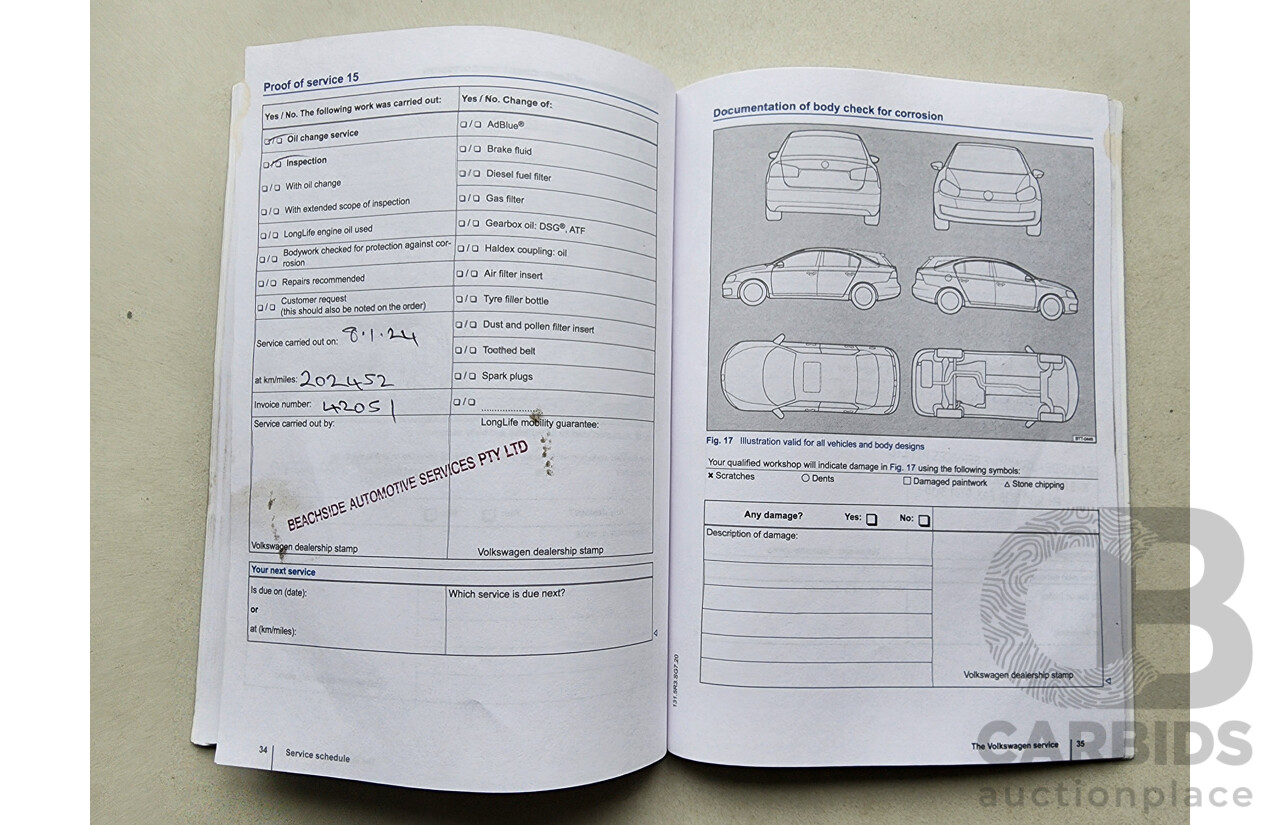 Proof of service 15
Yes / No. The following work was carried out:
Yes / No. Change of:
❑ / ❑ Oil change service
❑ / ❑ Inspection
❑ / ❑ With oil change
❑ / ❑ With extended scope of inspection
❑ / ❑ LongLife engine oil used
❑ / ❑ Bodywork checked for protection against cor-
rosion
❑ / ❑ Repairs recommended
❑ / ❑ Customer request
(this should also be noted on the order)
Service carried out on: 8.1.24
at km/miles: 202452
Invoice number: 42051
Service carried out by:
❑ / ❑ AdBlue®
❑ / ❑ Brake fluid
❑ / ❑ Diesel fuel filter
❑ / ❑ Gas filter
❑ / ❑ Gearbox oil: DSG®, ATF
❑ / ❑ Haldex coupling: oil
❑ / ❑ Air filter insert
❑ / ❑ Tyre filler bottle
❑ / ❑ Dust and pollen filter insert
❑ / ❑ Toothed belt
❑ / ❑ Spark plugs
❑ / ❑ ....................
LongLife mobility guarantee:
BEACHSIDE AUTOMOTIVE SERVICES PTY LTD
Volkswagen dealership stamp
Volkswagen dealership stamp
Your next service
Is due on (date):
or
at (km/miles):
Which service is due next?
34 Service schedule
131.5R3.SG7.20
Documentation of body check for corrosion
Fig. 17 Illustration valid for all vehicles and body designs
Your qualified workshop will indicate damage in Fig. 17 using the following symbols:
x Scratches
○ Dents
□ Damaged paintwork
△ Stone chipping
Any damage? Yes: ❑ No: ❑
Description of damage:
Volkswagen dealership stamp
The Volkswagen service 35
CB
CARBIDS
auctionplace